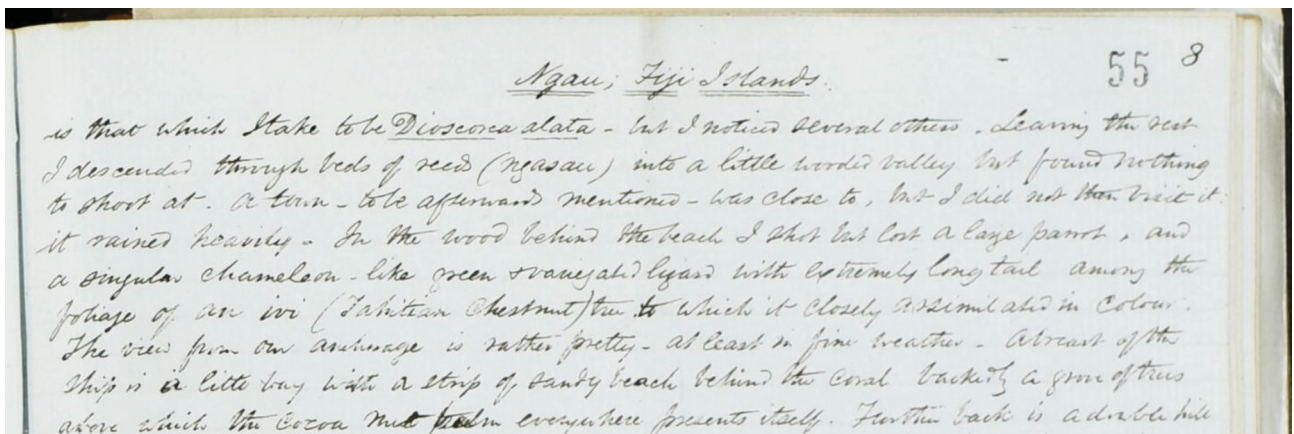 55 8
Ngau; Fiji Islands.
is that which I take to be Dioscorea alata - but I noticed several others. Leaving the rest
I descended through beds of reeds (ngasau) into a little wooded valley but found nothing
to shoot at. A town - to be afterwards mentioned - was close to, but I did not then visit it:
it rained heavily. In the wood behind the beach I shot but lost a large parrot, and
a singular chameleon-like green & variegated lizard with extremely long tail among the
foliage of an ivi (Tahitian Chestnut) tree to which it closely assimilated in colour.
The view from our anchorage is rather pretty - at least in fine weather. Abreast of the
ship is a little bay with a strip of sandy beach behind the coral backed by a grove of trees
above which the Cocoa nut palm everywhere presents itself. Further back is a double hill